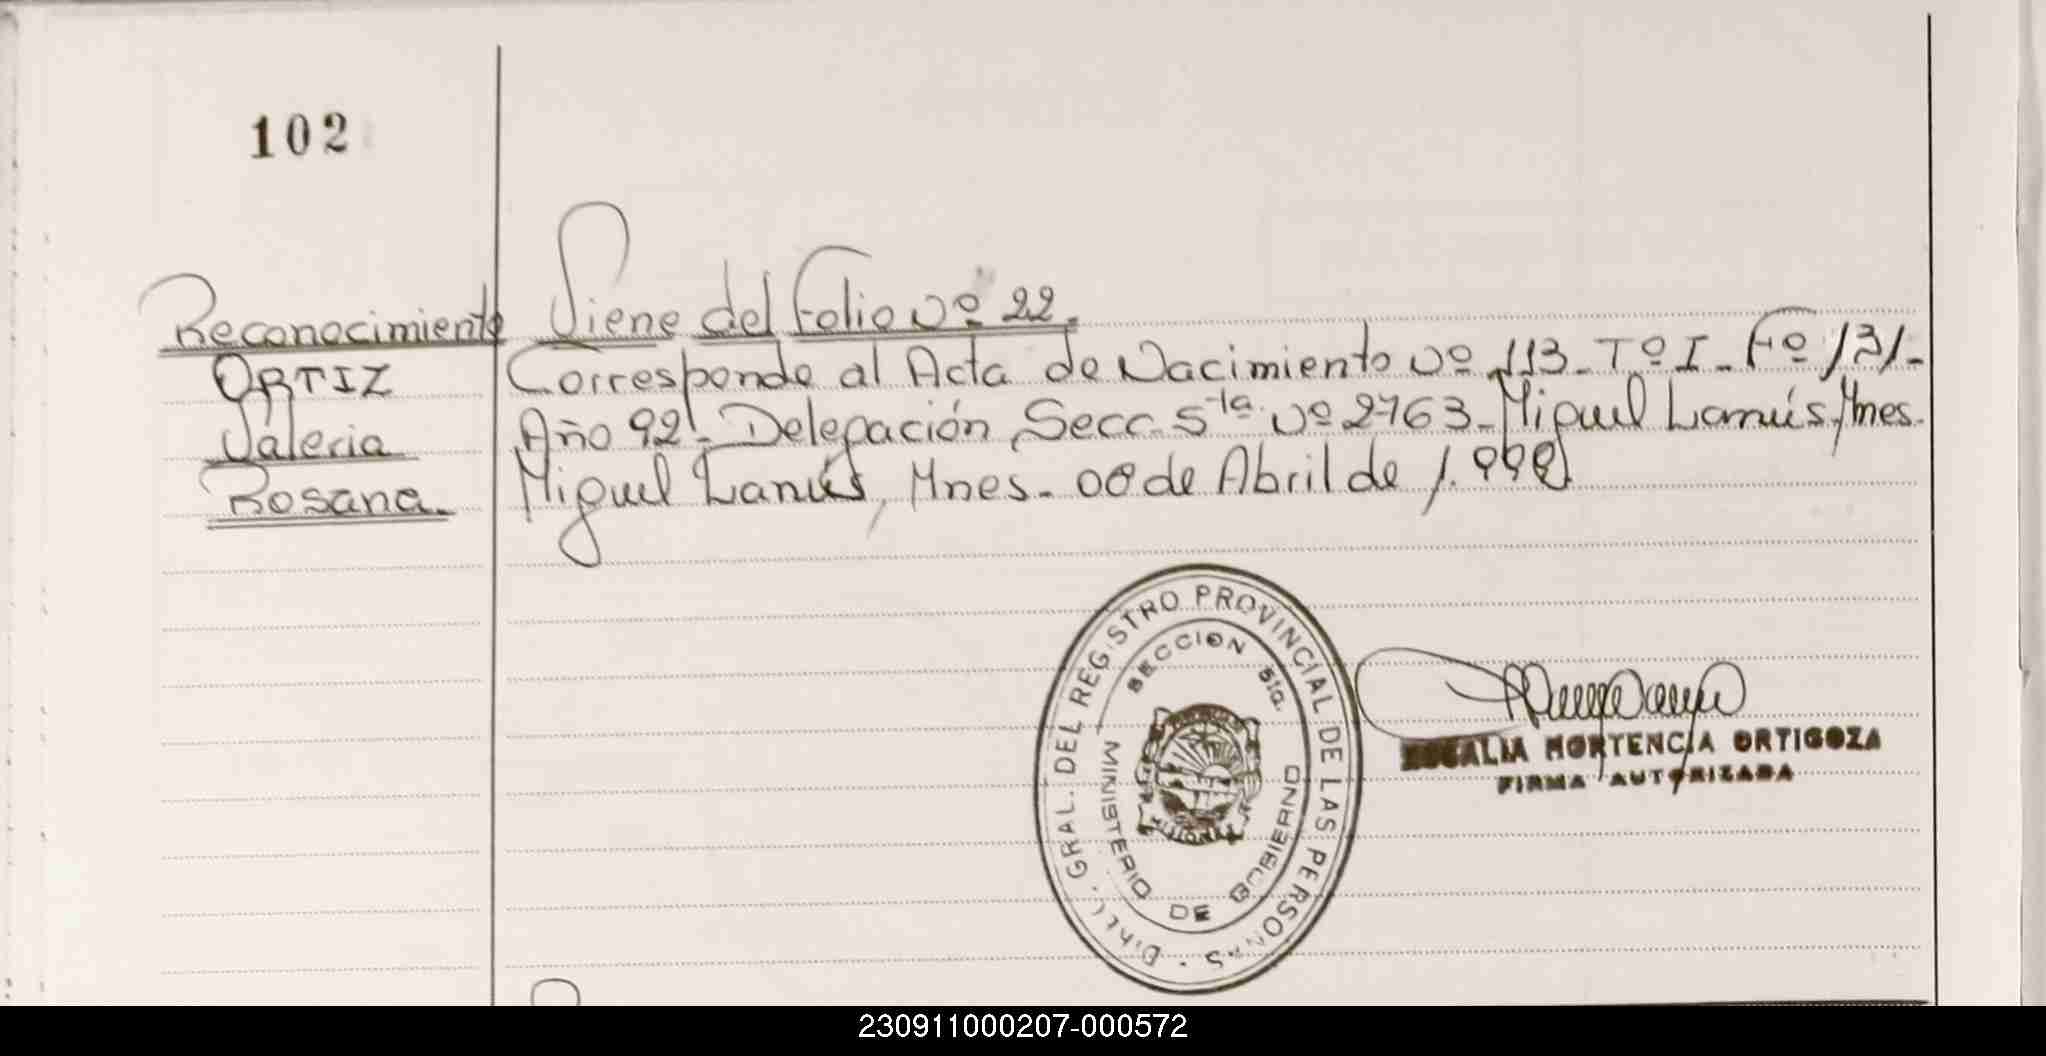 102
Reconocimiento
ORTIZ
Valeria
Rosana.
Viene del Folio Nº 22.
Corresponde al Acta de Nacimiento Nº 113_Tº I_Fº 131_
Año 92_Delegación Secc. 5ta. Nº 2763_Miguel Lanús, Mnes.
Miguel Lanús, Mnes_08 de Abril de 1.998
GRAL. DEL REGISTRO PROVINCIAL DE LAS PERSONAS
SECCION 5ta.
MINISTERIO DE GOBIERNO
HORTENCIA ORTIGOZA
FIRMA AUTORIZADA
230911000207-000572